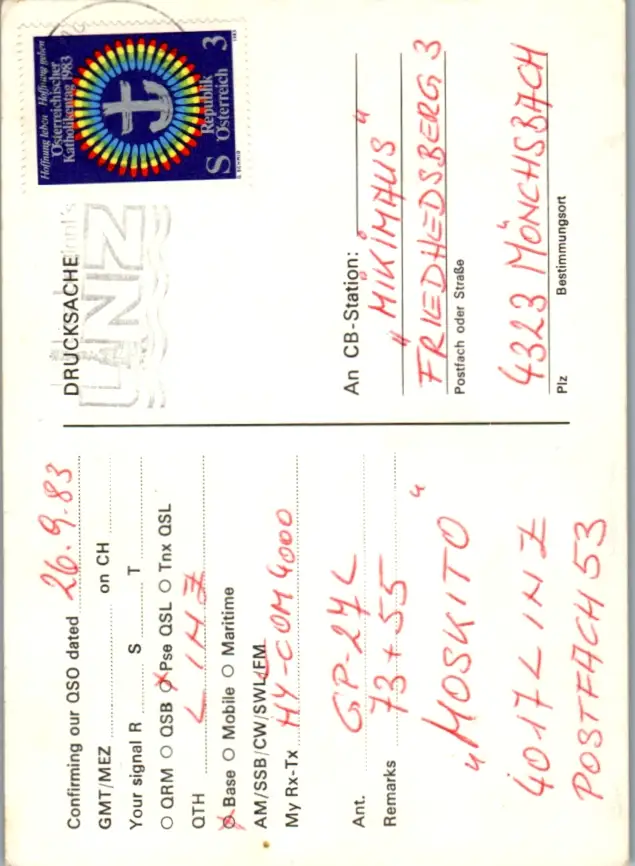 Confirming our QSO dated 26.9.83
GMT/MEZ on CH
Your signal R S T
QRM QSB Pse QSL Tnx QSL
QTH LINZ
Base Mobile Maritime
AM/SSB/CW/SWL/FM
My Rx-Tx HY-COM 4000
Ant. GP-27 L
Remarks 73 + 55
"MOSKITO"
4017 LINZ
POSTFACH 53
Hoffnung leben Hoffnung geben
Österreichischer
Katholikentag 1983
S Republik Österreich 3
DRUCKSACHE
LINZ
An CB-Station:
"MIKIMAUS"
FRIEDHEDSBERG 3
Postfach oder Straße
4323 MÖNCHSBACH
Plz Bestimmungsort